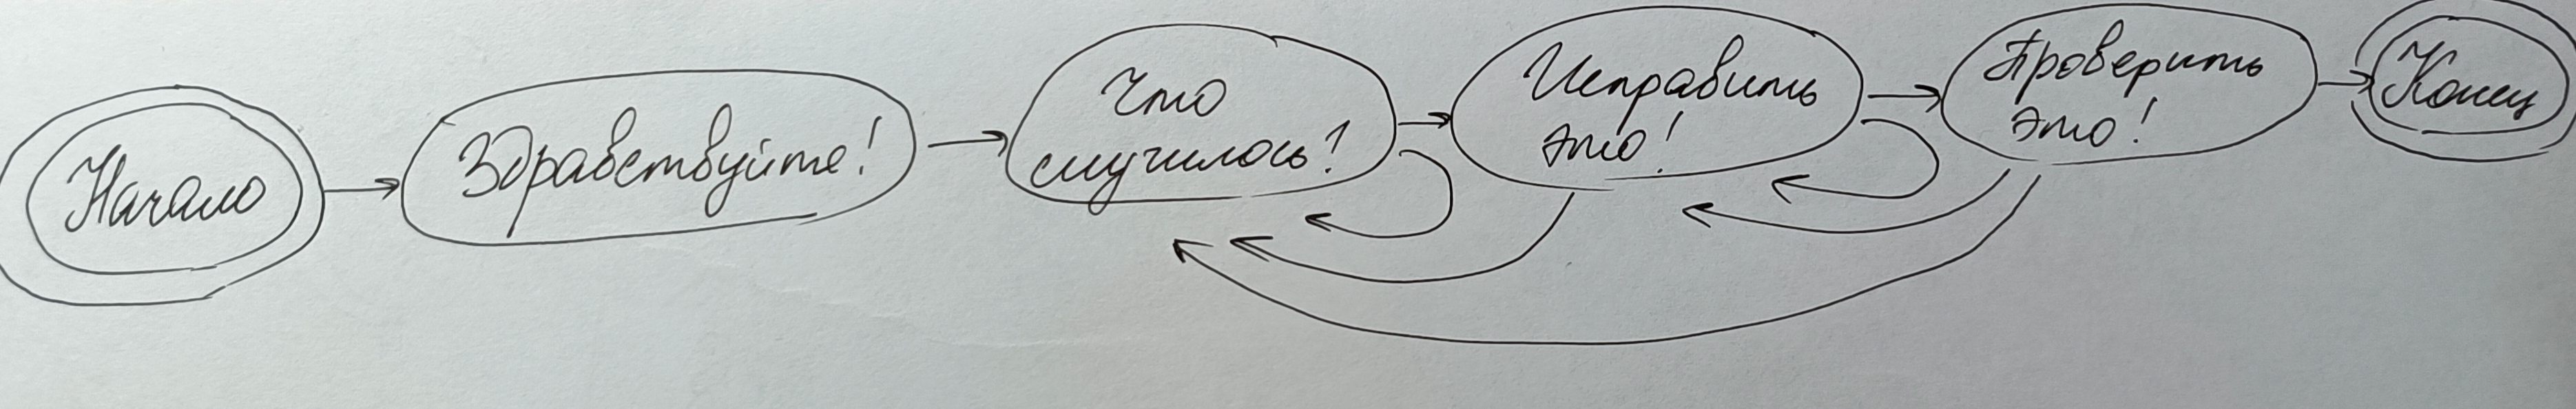 Начало
Здравствуйте!
Что
случилось?
Исправить
это!
Проверить
это!
Конец